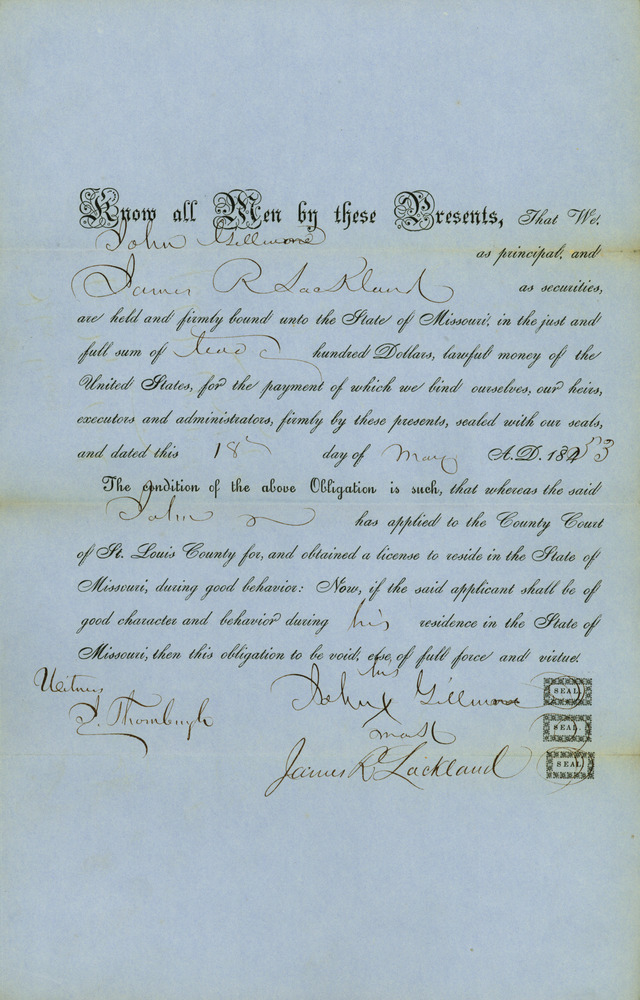 Know all Men by these Presents, That We,
John Gillmore as principal, and
James R Lackland as securities,
are held and firmly bound unto the State of Missouri, in the just and
full sum of two hundred Dollars, lawful money of the
United States, for the payment of which we bind ourselves, our heirs,
executors and administrators, firmly by these presents, sealed with our seals,
and dated this 18 day of May A.D. 1853
The Condition of the above Obligation is such, that whereas the said
John has applied to the County Court
of St. Louis County for, and obtained a license to reside in the State of
Missouri, during good behavior: Now, if the said applicant shall be of
good character and behavior during his residence in the State of
Missouri, then this obligation to be void, else, of full force and virtue.
Witness
Thornburgh
his
John X Gillmore SEAL
mark SEAL
James R Lackland SEAL